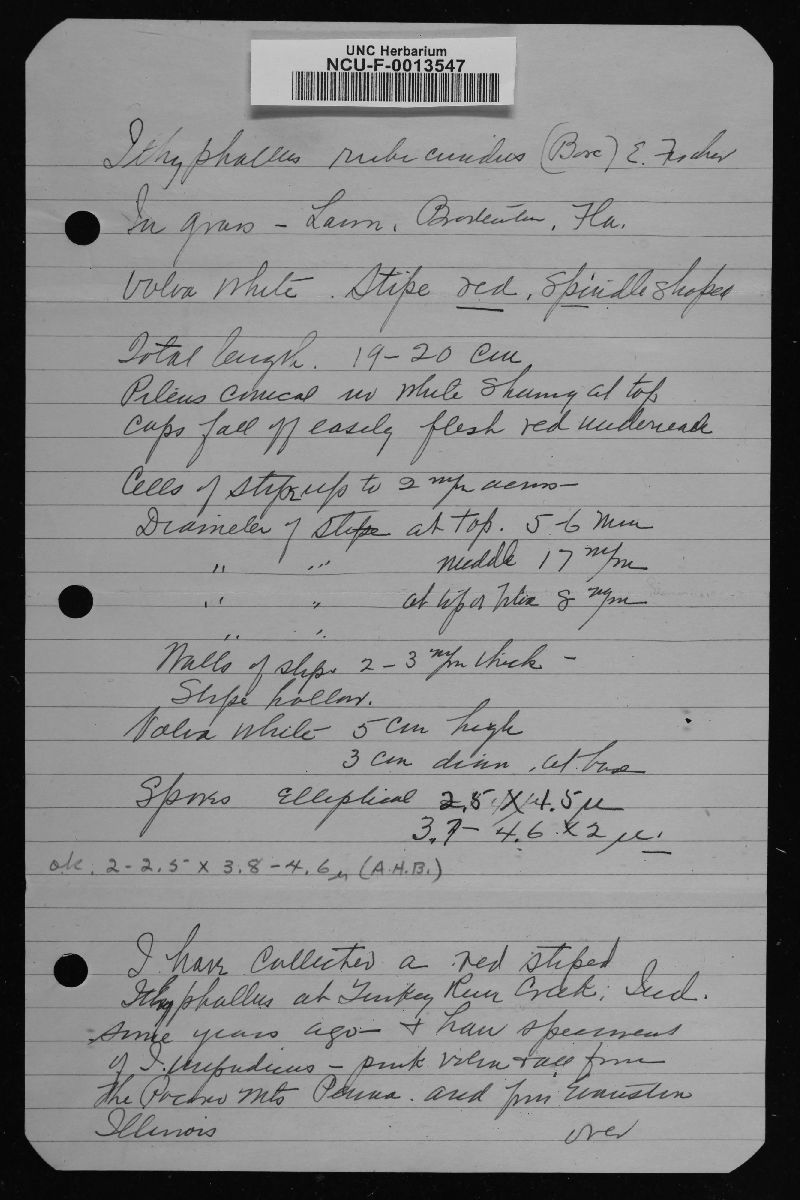 UNC Herbarium
NCU-F-0013547
Ithyphallus rubicundus (Bosc) E. Fischer
In grass - Lawn, Bradenton, Fla.
Volva white. Stipe red, spindle shaped
Total length. 19-20 cm
Pileus conical white at top
Caps fall off easily flesh red underneath
Cells of stipe up to 2 m/m across -
Diameter of stipe at top. 5-6 mm
" " middle 17 m/m
" " at volva 8 m/m
" "
Walls of stipe 2-3 m/m thick -
Stipe hollow.
Volva white 5 cm high
3 cm diam. at base
Spores elliptical 2.5 X 4.5 µ
3.7- 4.6 x 2 µ.
ok. 2-2.5 x 3.8-4.6µ (A.H.B.)
I have collected a red stiped
Ithyphallus at Turkey Run Creek, Ind.
some years ago - & have specimens
of I. impudicus - pink volva & all from
the Pocono Mts Penna. and from Evanston
Illinois
over